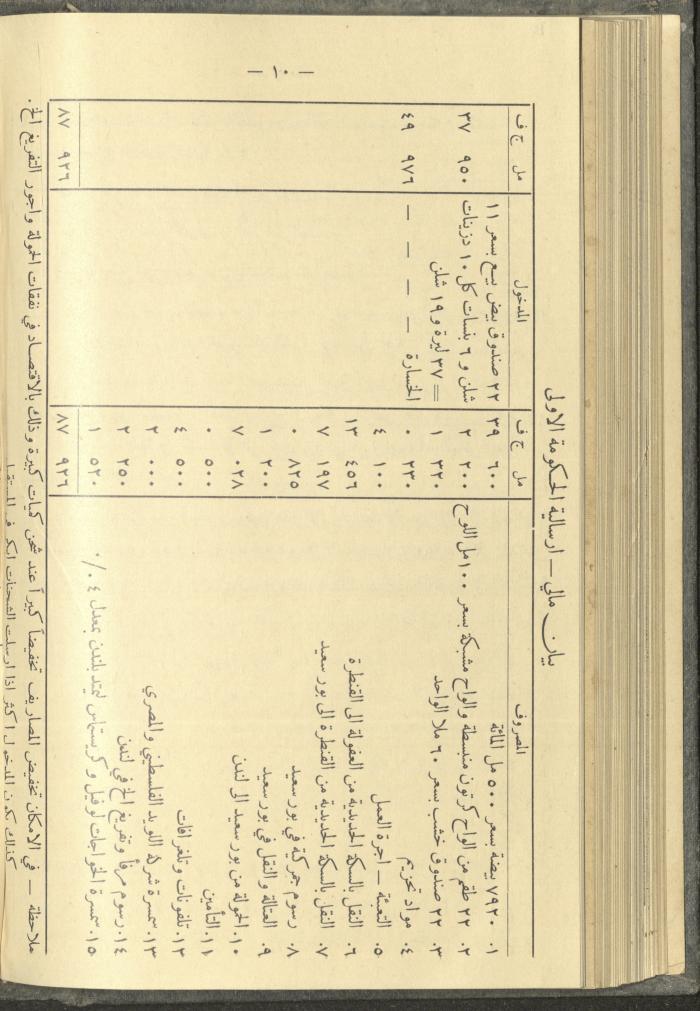 — ١٠ —
بيان مالي — ارسالية الحكومة الاولى
المصروف
مل ج ف
المدخول
مل ج ف
١. ٧٩٢٠ بيضة بسعر ٥٠٠ مل المائة ٦٠٠ ٣٩
٢. ٢٢ طقم من الواح كرتون منبسطة والواح مشبكة بسعر ١٠٠ مل اللوح ٢٠٠ ٢
٣. ٢٢ صندوق خشب بسعر ٦٠ ملا الواحد ٣٢٠ ١
٤. مواد تحزيم ٢٣٠ ٠
٥. التعبئة — اجرة العمل ١٠٠ ٤
٦. النقل بالسكة الحديدية من العفولة الى القنطرة ٤٥٦ ١٣
٧. النقل بالسكة الحديدية من القنطرة الى بور سعيد ١٩٧ ٧
٨. رسوم جمركية في بور سعيد ٨٢٥ ٠
٩. العتالة والنقل في بور سعيد ٢٠٠ ١
١٠. الحمولة من بور سعيد الى لندن ٠٢٨ ٧
١١. التأمين ٥٠٠ ٠
١٢. تلفونات وتلغرافات ٥٠٠ ٤
١٣. سمسرة شركة اللويد الفلسطيني والمصري ٠٠٠ ٢
١٤. رسوم مرفأ وتفريغ الخ في لندن ٢٥٠ ٢
١٥. سمسرة الخواجات لوفيل وكريستماس ليمتد بلندن بمعدل ٤ ٠/٠ ٥٢٠ ١
٩٢٦ ٨٧
٢٢ صندوق بيض بيع بسعر ١١
شلن و ٦ بنسات كل ١٠ دزينات ٩٥٠ ٣٧
= ٣٧ ليرة و ١٩ شلن
الخسارة — — — — ٩٧٦ ٤٩
٩٢٦ ٨٧
ملاحظة — في الامكان تخفيض المصاريف تخفيضاً كبيراً عند شحن كميات كبيرة وذلك بالاقتصاد في نفقات الحمولة واجور التفريغ الخ.
كذلك يكون المدخول اكثر اذا ارسلت الشحنات